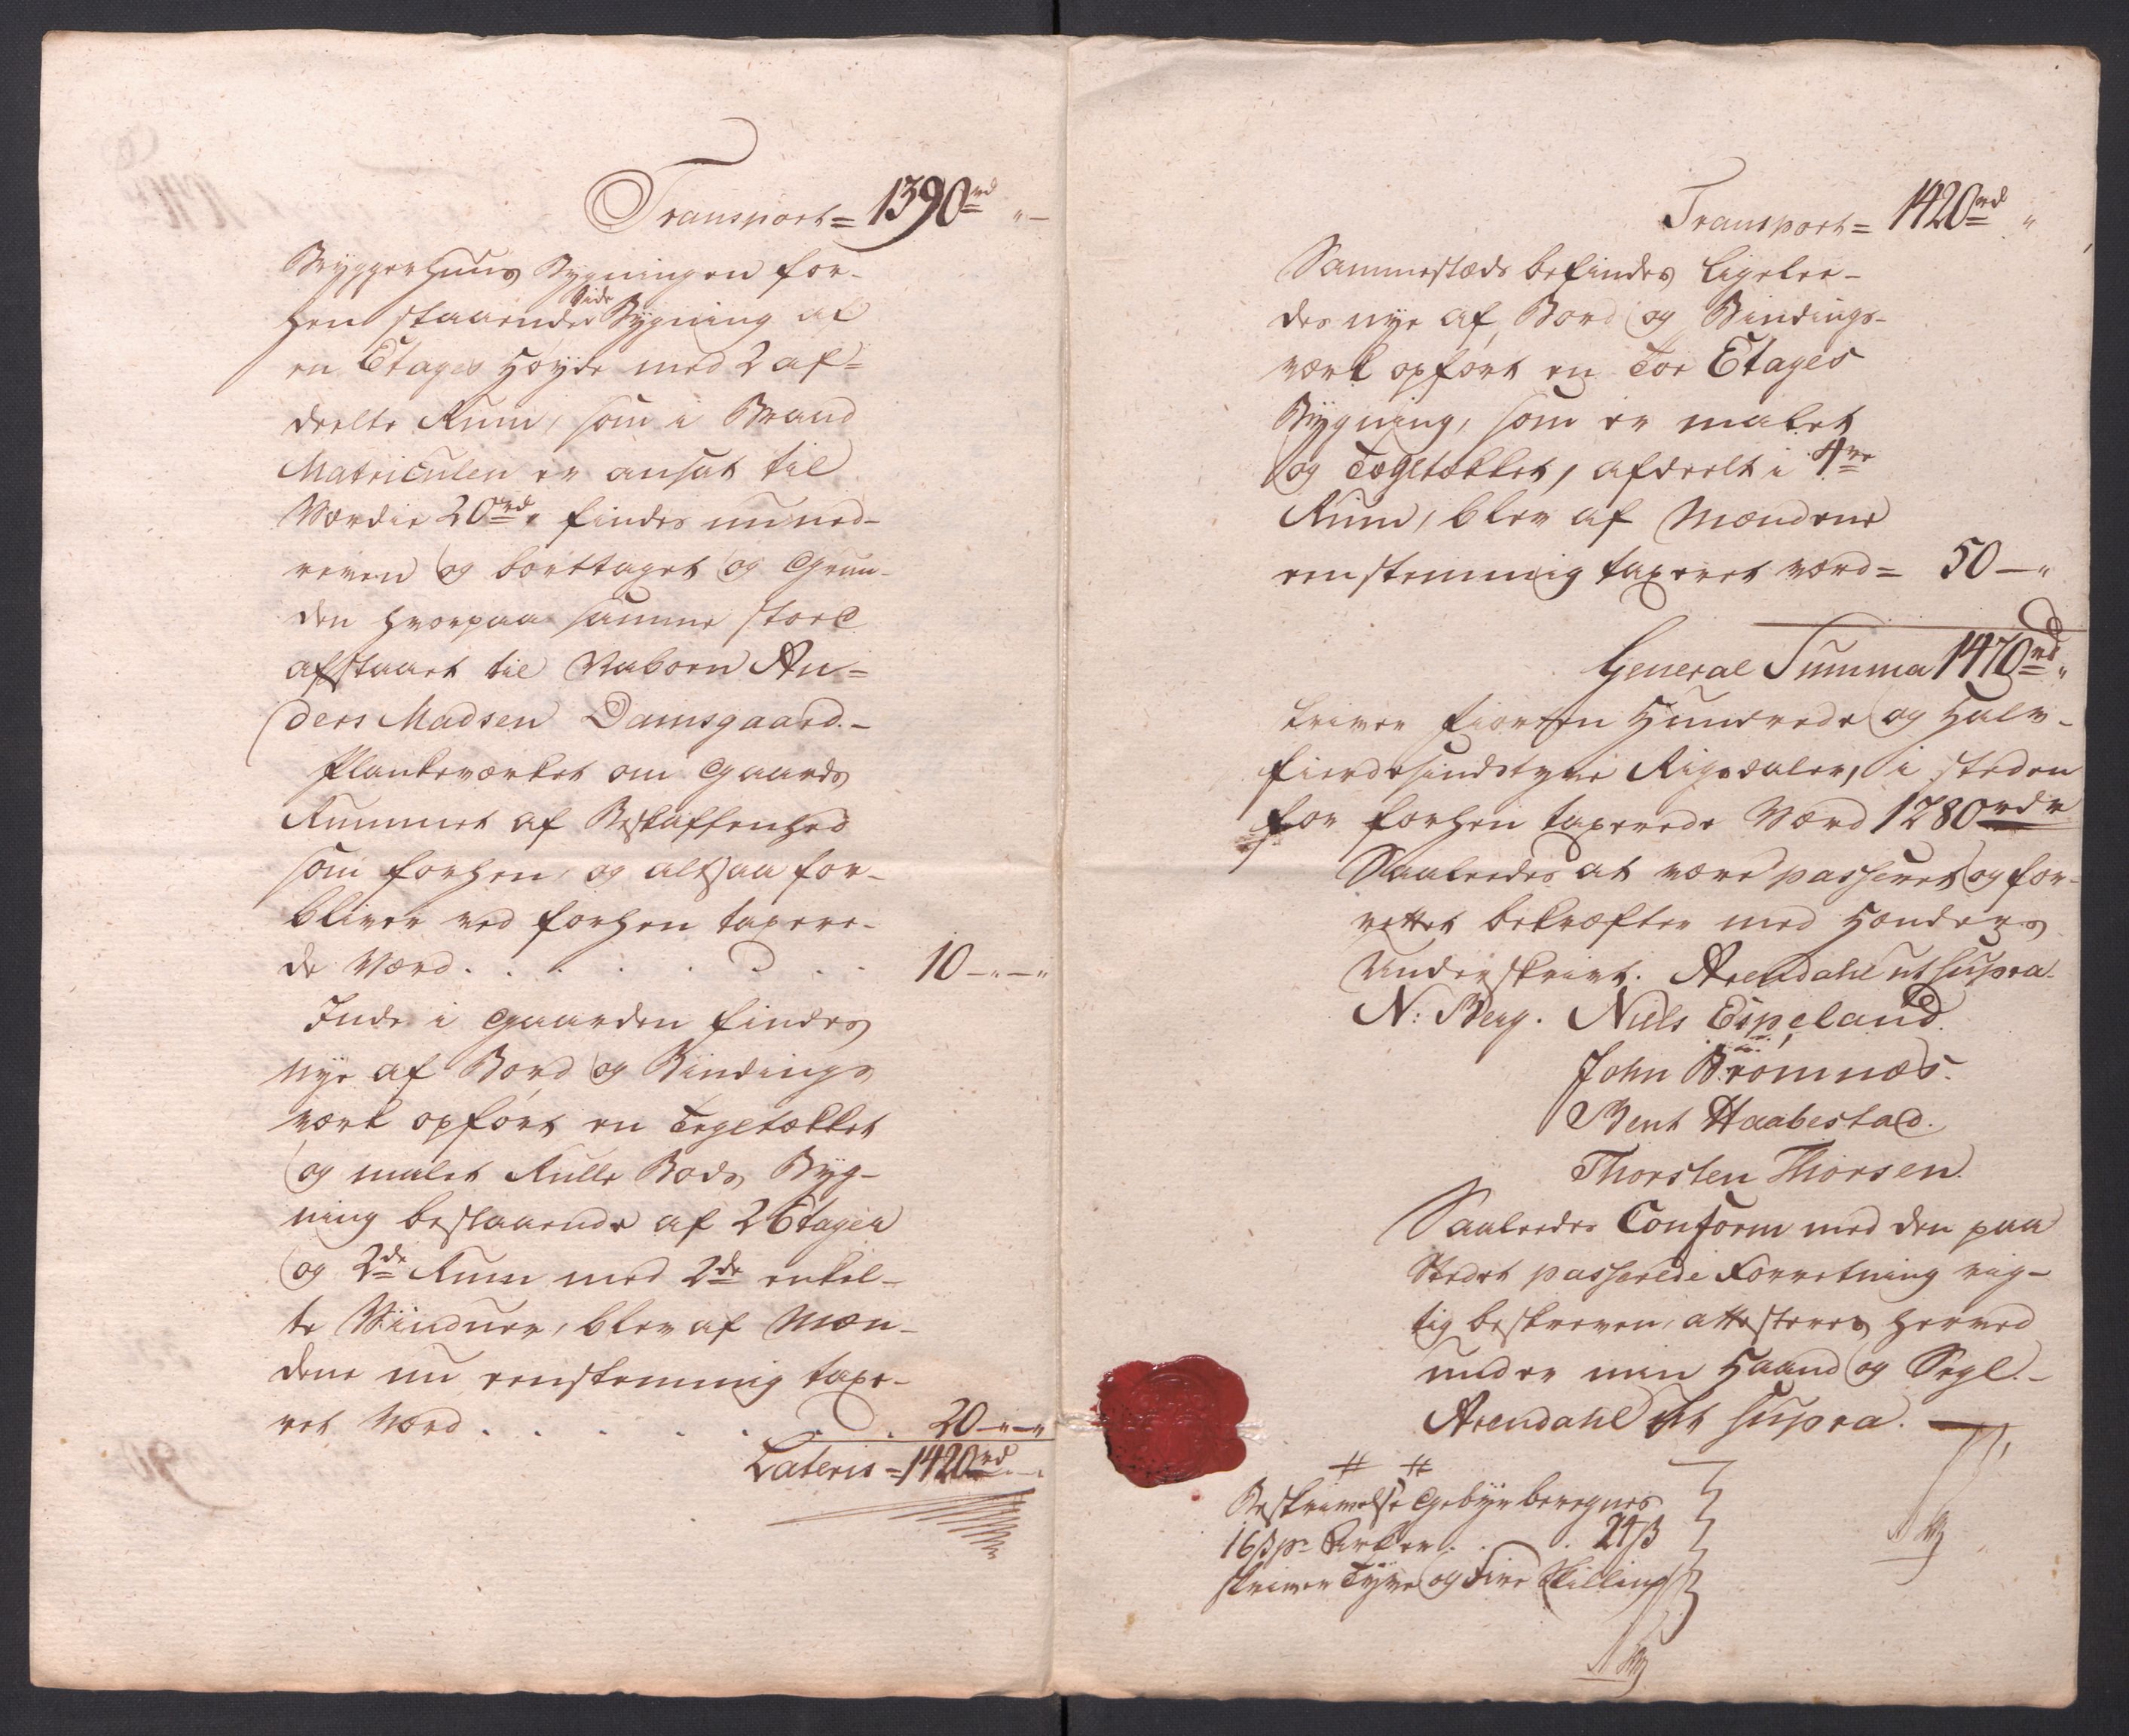 Transport = 1390rd "–
Bryggerhuus Bygningen for-
hen staaende Side Bygning af
en Etages Høyde med 2 af-
deelte Rum, som i Brand
Matriculen er ansat til
Værdie 20rd, findes nu ned-
reven og borttaget og Grun-
den hvorpaa samme stoed
afstaaet til Naboen An=
ders Madsen Damsgaard.–
Plankeværket om Gaards
Rummet af Beskaffenhed
som forhen, og altsaa for-
bliver ved forhen taxere-
de Værd . . . . . . . 10 – " – "
Inde i Gaarden findes
nye af Bord og Bindings
værk opført en Tegltækket
og malet Rulle Bods Byg-
ning bestaaende af 2 Etager
og 2de Rum med 2de enkel-
te Vinduer, blev af Mæn-
dene nu eenstemmig taxe-
ret Værd . . . . . . . 20 – " – "
Lateris = 1420rd
Transport = 1420rd "
Sammestæds befindes ligelee-
des nye af Bord og Bindings-
værk opført en Toe Etages
Bygning, som er malet
og Tægltækket, afdeelt i 4re
Rum, blev af Mændene
eenstemmig taxeret værd = 50 – "
General Summa 1470rd "
skriver fiorten Hundrede og Halv-
fierdesindstyve Rigsdaler, i steden
for forhen taxerede Værd 1280rdr
Saaleedes at være passeret og for-
rettet bekræfter med Hænders
Underskrivt. Arendahl ut supra.
N: Berg. Niels Espeland.
John Bromnæs.
Bent Haabestad.
Thorsten Thorsen.
Saaleedes Conform med den paa
Stedet passerede Forretning rig-
tig beskreven, attesteres herved
under min Haand og Segl.–
Arendahl ut supra.
Beskrivelse Gebyr beregnes
16 ß pr Ark er . . 24 ß
skriver Tyve og Fire Skilling